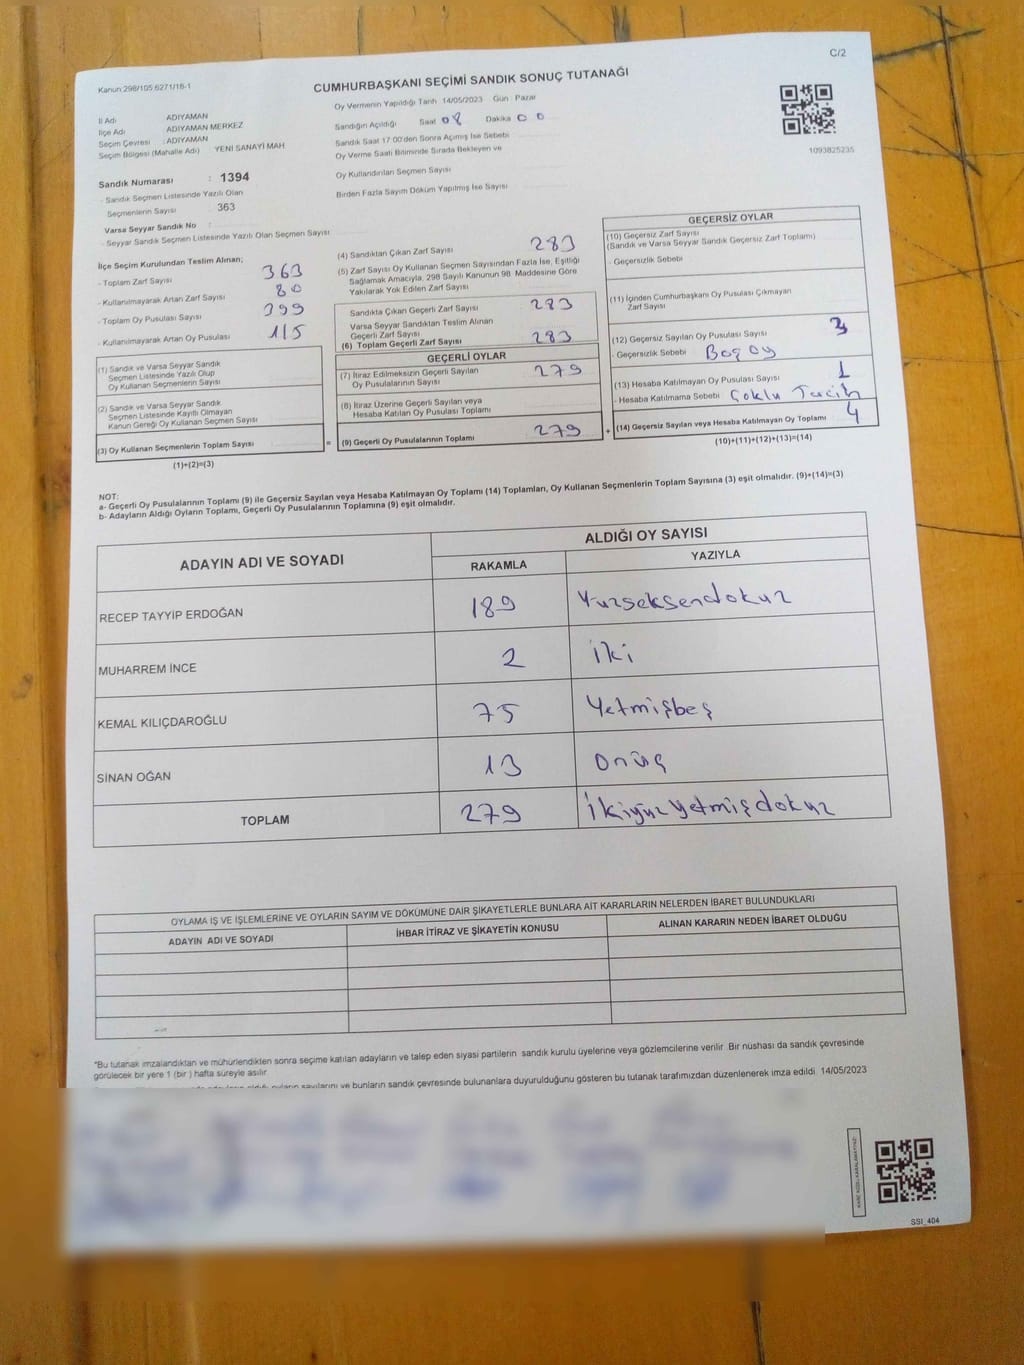 C/2
Kanun:298/105,6271/18-1
CUMHURBAŞKANI SEÇİMİ SANDIK SONUÇ TUTANAĞI
Oy Vermenin Yapıldığı Tarih 14/05/2023 Gün : Pazar
İl Adı ADIYAMAN
İlçe Adı ADIYAMAN MERKEZ
Seçim Çevresi : ADIYAMAN
Seçim Bölgesi (Mahalle Adı) YENİ SANAYİ MAH
Sandığın Açıldığı Saat 08 Dakika 00
Sandık Saat 17:00'den Sonra Açılmış İse Sebebi
Oy Verme Saati Bitiminde Sırada Bekleyen ve
Oy Kullandırılan Seçmen Sayısı
Birden Fazla Sayım Döküm Yapılmış İse Sayısı
1093825235
Sandık Numarası : 1394
- Sandık Seçmen Listesinde Yazılı Olan
Seçmenlerin Sayısı : 363
Varsa Seyyar Sandık No :
- Seyyar Sandık Seçmen Listesinde Yazılı Olan Seçmen Sayısı
İlçe Seçim Kurulundan Teslim Alınan;
- Toplam Zarf Sayısı 363
- Kullanılmayarak Artan Zarf Sayısı 80
- Toplam Oy Pusulası Sayısı 399
- Kullanılmayarak Artan Oy Pusulası 115
(1) Sandık ve Varsa Seyyar Sandık
Seçmen Listesinde Yazılı Olup
Oy Kullanan Seçmenlerin Sayısı
(2) Sandık ve Varsa Seyyar Sandık
Seçmen Listesinde Kayıtlı Olmayan
Kanun Gereği Oy Kullanan Seçmen Sayısı
(3) Oy Kullanan Seçmenlerin Toplam Sayısı
(1)+(2)=(3)
(4) Sandıktan Çıkan Zarf Sayısı 283
(5) Zarf Sayısı Oy Kullanan Seçmen Sayısından Fazla İse, Eşitliği
Sağlamak Amacıyla, 298 Sayılı Kanunun 98. Maddesine Göre
Yakılarak Yok Edilen Zarf Sayısı
Sandıkta Çıkan Geçerli Zarf Sayısı 283
Varsa Seyyar Sandıktan Teslim Alınan
Geçerli Zarf Sayısı
(6) Toplam Geçerli Zarf Sayısı 283
GEÇERLİ OYLAR
(7) İtiraz Edilmeksizin Geçerli Sayılan
Oy Pusulalarının Sayısı 279
(8) İtiraz Üzerine Geçerli Sayılan veya
Hesaba Katılan Oy Pusulası Toplamı
= (9) Geçerli Oy Pusulalarının Toplamı 279
GEÇERSİZ OYLAR
(10) Geçersiz Zarf Sayısı
(Sandık ve Varsa Seyyar Sandık Geçersiz Zarf Toplamı)
- Geçersizlik Sebebi
(11) İçinden Cumhurbaşkanı Oy Pusulası Çıkmayan
Zarf Sayısı
(12) Geçersiz Sayılan Oy Pusulası Sayısı 3
- Geçersizlik Sebebi Boş oy
(13) Hesaba Katılmayan Oy Pusulası Sayısı 1
- Hesaba Katılmama Sebebi Çoklu Tercih
+ (14) Geçersiz Sayılan veya Hesaba Katılmayan Oy Toplamı 4
(10)+(11)+(12)+(13)=(14)
NOT:
a- Geçerli Oy Pusulalarının Toplamı (9) ile Geçersiz Sayılan veya Hesaba Katılmayan Oy Toplamı (14) Toplamları, Oy Kullanan Seçmenlerin Toplam Sayısına (3) eşit olmalıdır. (9)+(14)=(3)
b- Adayların Aldığı Oyların Toplamı, Geçerli Oy Pusulalarının Toplamına (9) eşit olmalıdır.
ADAYIN ADI VE SOYADI ALDIĞI OY SAYISI
RAKAMLA YAZIYLA
RECEP TAYYİP ERDOĞAN 189 Yüzseksendokuz
MUHARREM İNCE 2 iki
KEMAL KILIÇDAROĞLU 75 Yetmişbeş
SİNAN OĞAN 13 onüç
TOPLAM 279 ikiyüzyetmişdokuz
OYLAMA İŞ VE İŞLEMLERİNE VE OYLARIN SAYIM VE DÖKÜMÜNE DAİR ŞİKAYETLERLE BUNLARA AİT KARARLARIN NELERDEN İBARET BULUNDUKLARI
ADAYIN ADI VE SOYADI İHBAR İTİRAZ VE ŞİKAYETİN KONUSU ALINAN KARARIN NEDEN İBARET OLDUĞU
"Bu tutanak imzalandıktan ve mühürlendikten sonra seçime katılan adayların ve talep eden siyasi partilerin sandık kurulu üyelerine veya gözlemcilerine verilir. Bir nüshası da sandık çevresinde
görülecek bir yere 1 (bir) hafta süreyle asılır
oyların sayılarını ve bunların sandık çevresinde bulunanlara duyurulduğunu gösteren bu tutanak tarafımızdan düzenlenerek imza edildi. 14/05/2023
SSI_404